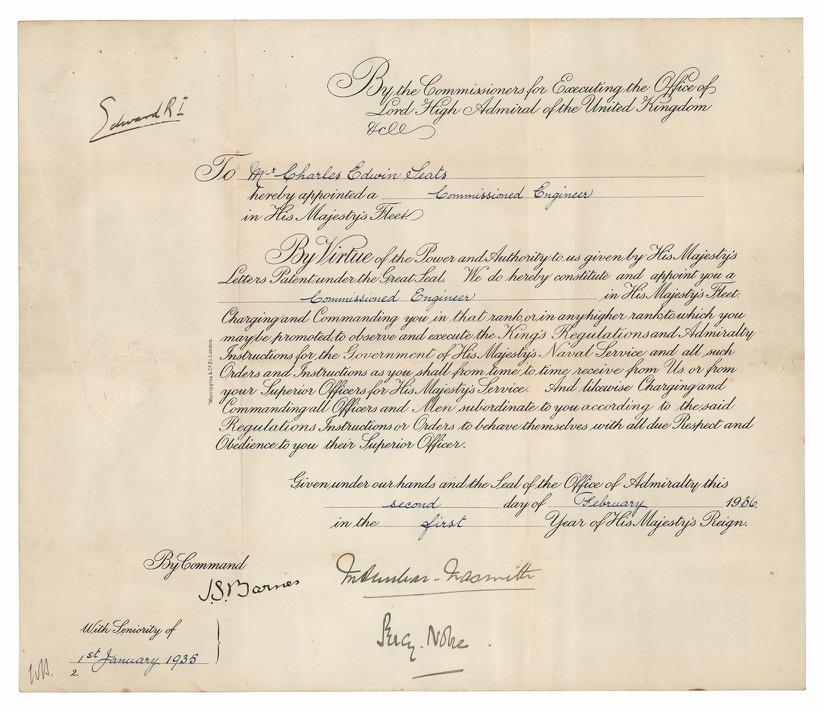 Edward R I
By the Commissioners for Executing the Office of
Lord High Admiral of the United Kingdom
&c&c
To Mr. Charles Edwin Seats
hereby appointed a Commissioned Engineer
in His Majesty's Fleet.
By Virtue of the Power and Authority to us given by His Majesty's
Letters Patent under the Great Seal. We do hereby constitute and appoint you a
Commissioned Engineer in His Majesty's Fleet.
Charging and Commanding you in that rank or in any higher rank to which you
may be promoted, to observe and execute the King's Regulations and Admiralty
Instructions for the Government of His Majesty's Naval Service and all such
Orders and Instructions as you shall from time to time receive from Us or from
your Superior Officers for His Majesty's Service. And likewise Charging and
Commanding all Officers and Men subordinate to you according to the said
Regulations Instructions or Orders to behave themselves with all due Respect and
Obedience to you their Superior Officer.
Given under our hands and the Seal of the Office of Admiralty this
second day of February 1936.
in the first Year of His Majesty's Reign.
By Command
J.S. Barnes
M Dunbar-Nasmith
Percy. Noble.
With Seniority of
1st January 1935
2.
Warrington & Co. London.